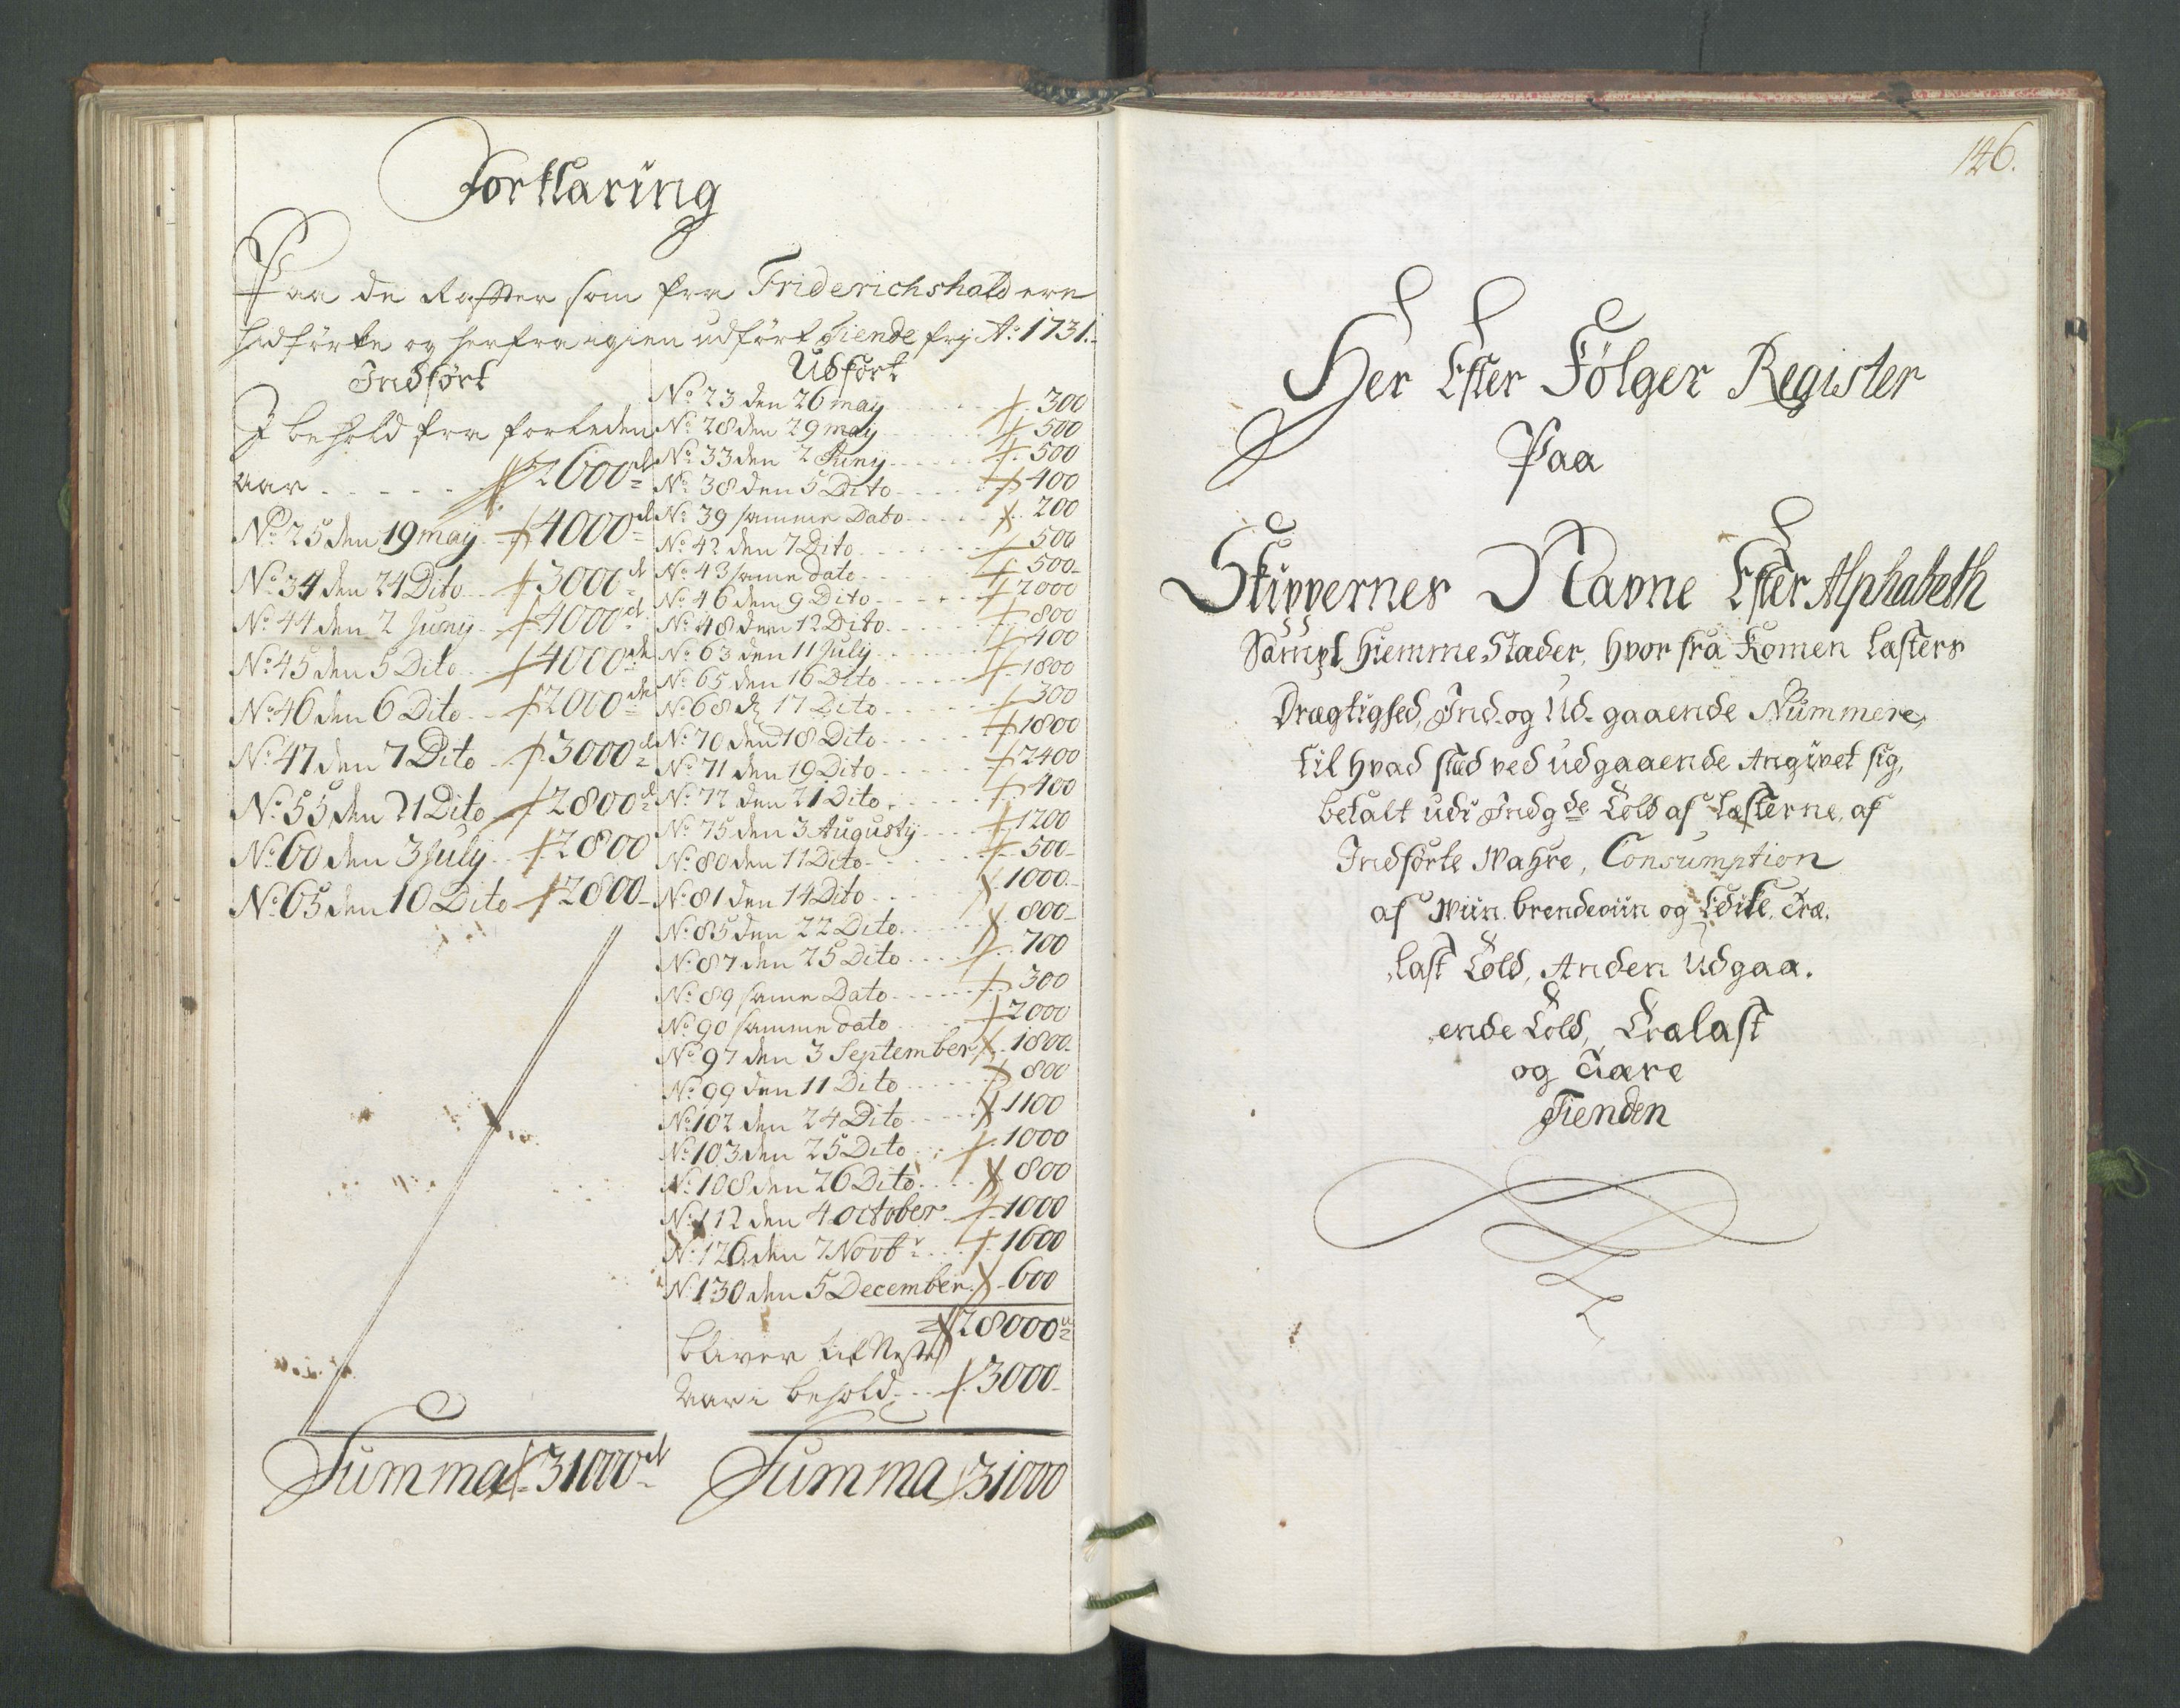 Forklaring
Paa de Rafter som fra Friderichshald ere
hidførte og herfra igien udført Tiende frj Aº: 1731.
Indført
I behold fra forleden
aar - - - - - 2600
Nº 25 den 19 maÿ 4000
Nº 34 den 24 Dito 3000
Nº 44 den 2 Junÿ 4000
Nº 45 den 5 Dito 4000
Nº 46 den 6 Dito 2000
Nº 47 den 7 Dito 3000
Nº 55 den 21 Dito 2800
Nº 60 den 3 Julÿ 2800
Nº 65 den 10 Dito 2800
Summa 31000
Udført
Nº 23 den 26 maÿ 300
Nº 28 den 29 maÿ 500
Nº 33 den 2 Junÿ 500
Nº 38 den 5 Dito 400
Nº 39 samme Dato 200
Nº 42 den 7 Dito 500
Nº 43 samme dato 500
Nº 46 den 9 Dito 2000
Nº 48 den 12 Dito 800
Nº 63 den 11 July 400
Nº 65 den 16 Dito 1800
Nº 68 d 17 Dito 300
Nº 70 den 18 Dito 1800
Nº 71 den 19 Dito 2400
Nº 72 den 21 Dito 400
Nº 75 den 3 Augustÿ 1200
Nº 80 den 11 Dito 500
Nº 81 den 14 Dito 1000
Nº 85 den 22 Dito 800
Nº 87 den 25 Dito 700
Nº 89 samme Dato 300
Nº 90 samme dato 2000
Nº 97 den 3 September 1800
Nº 99 den 11 Dito 800
Nº 102 den 24 Dito 1100
Nº 103 den 25 Dito 1000
Nº 108 den 26 Dito 800
Nº 112 den 4 October 1000
Nº 126 den 7 Novbr 1600
Nº 130 den 5 December 600
28000
bliver til Neste
Aar i behold 3000
Summa 31000
126.
Her Efter Fölger Register
Paa
Skippernes Navne Efter Alphabeth
Sampt Hiemme Stæder, hvor fra Komen Læsters
Drægtighed, Ind- og Ud-gaaende Nummere,
til hvad stæd ved udgaaende Angivet sig,
betalt udi Indgde Told af Læsterne, af
Indförte Wahre, Consumption
af Wiin brendeviin og Edike, Træ-
last Told, Anden Udgaa-
ende Told, Trælast
og Tiære
Tienden